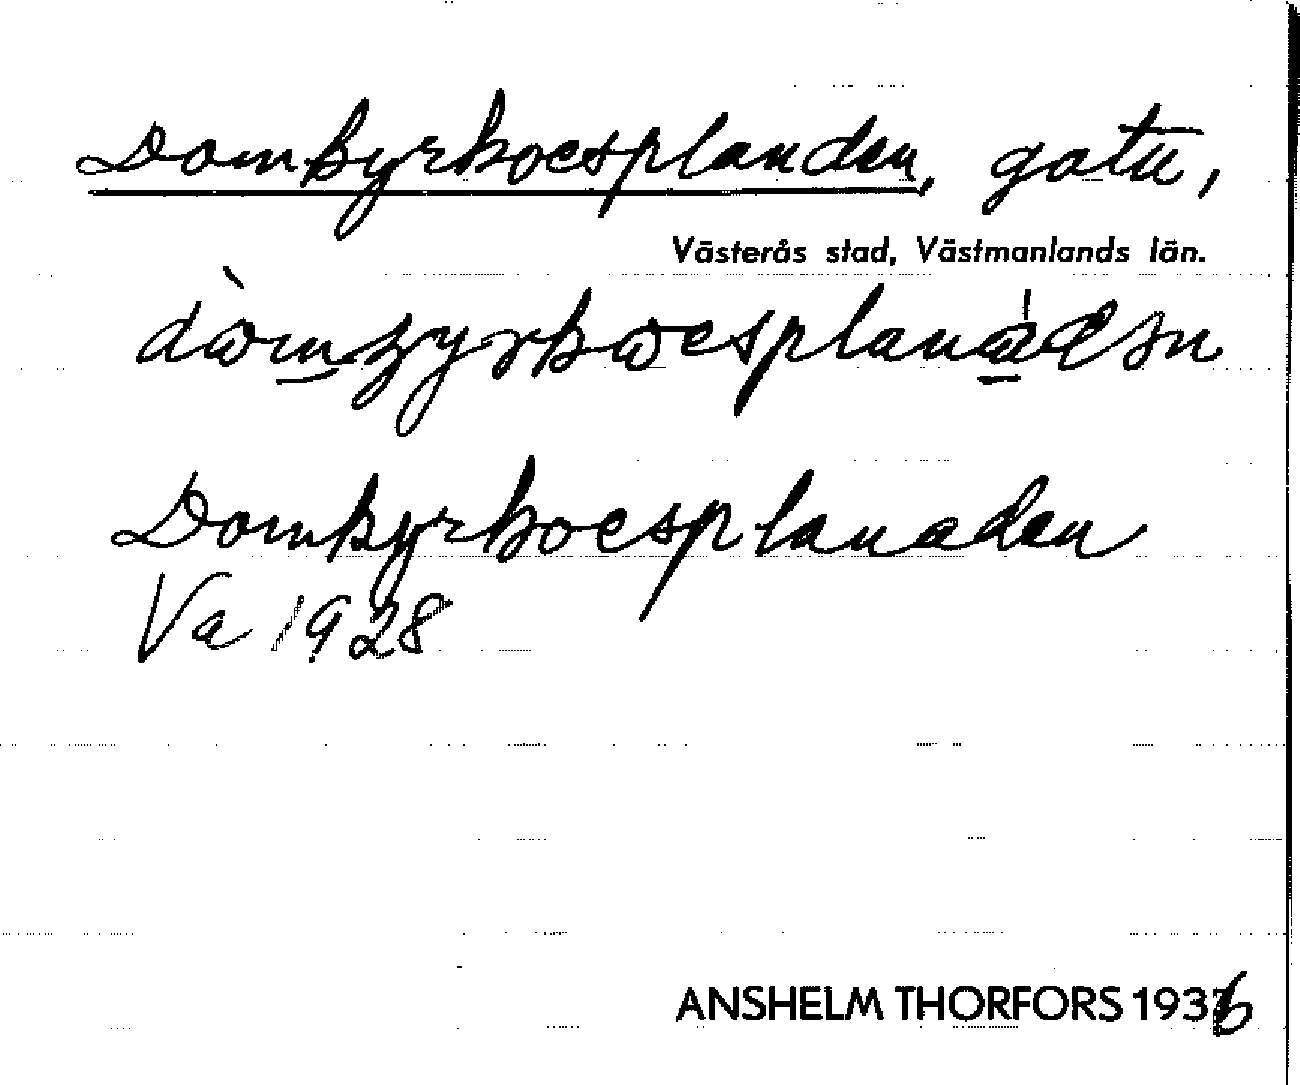 Domkyrkoesplanden, gata,
Västerås stad, Västmanlands län.
Domkyrkoesplanaden
Va 1928
ANSHELM THORFORS 1936